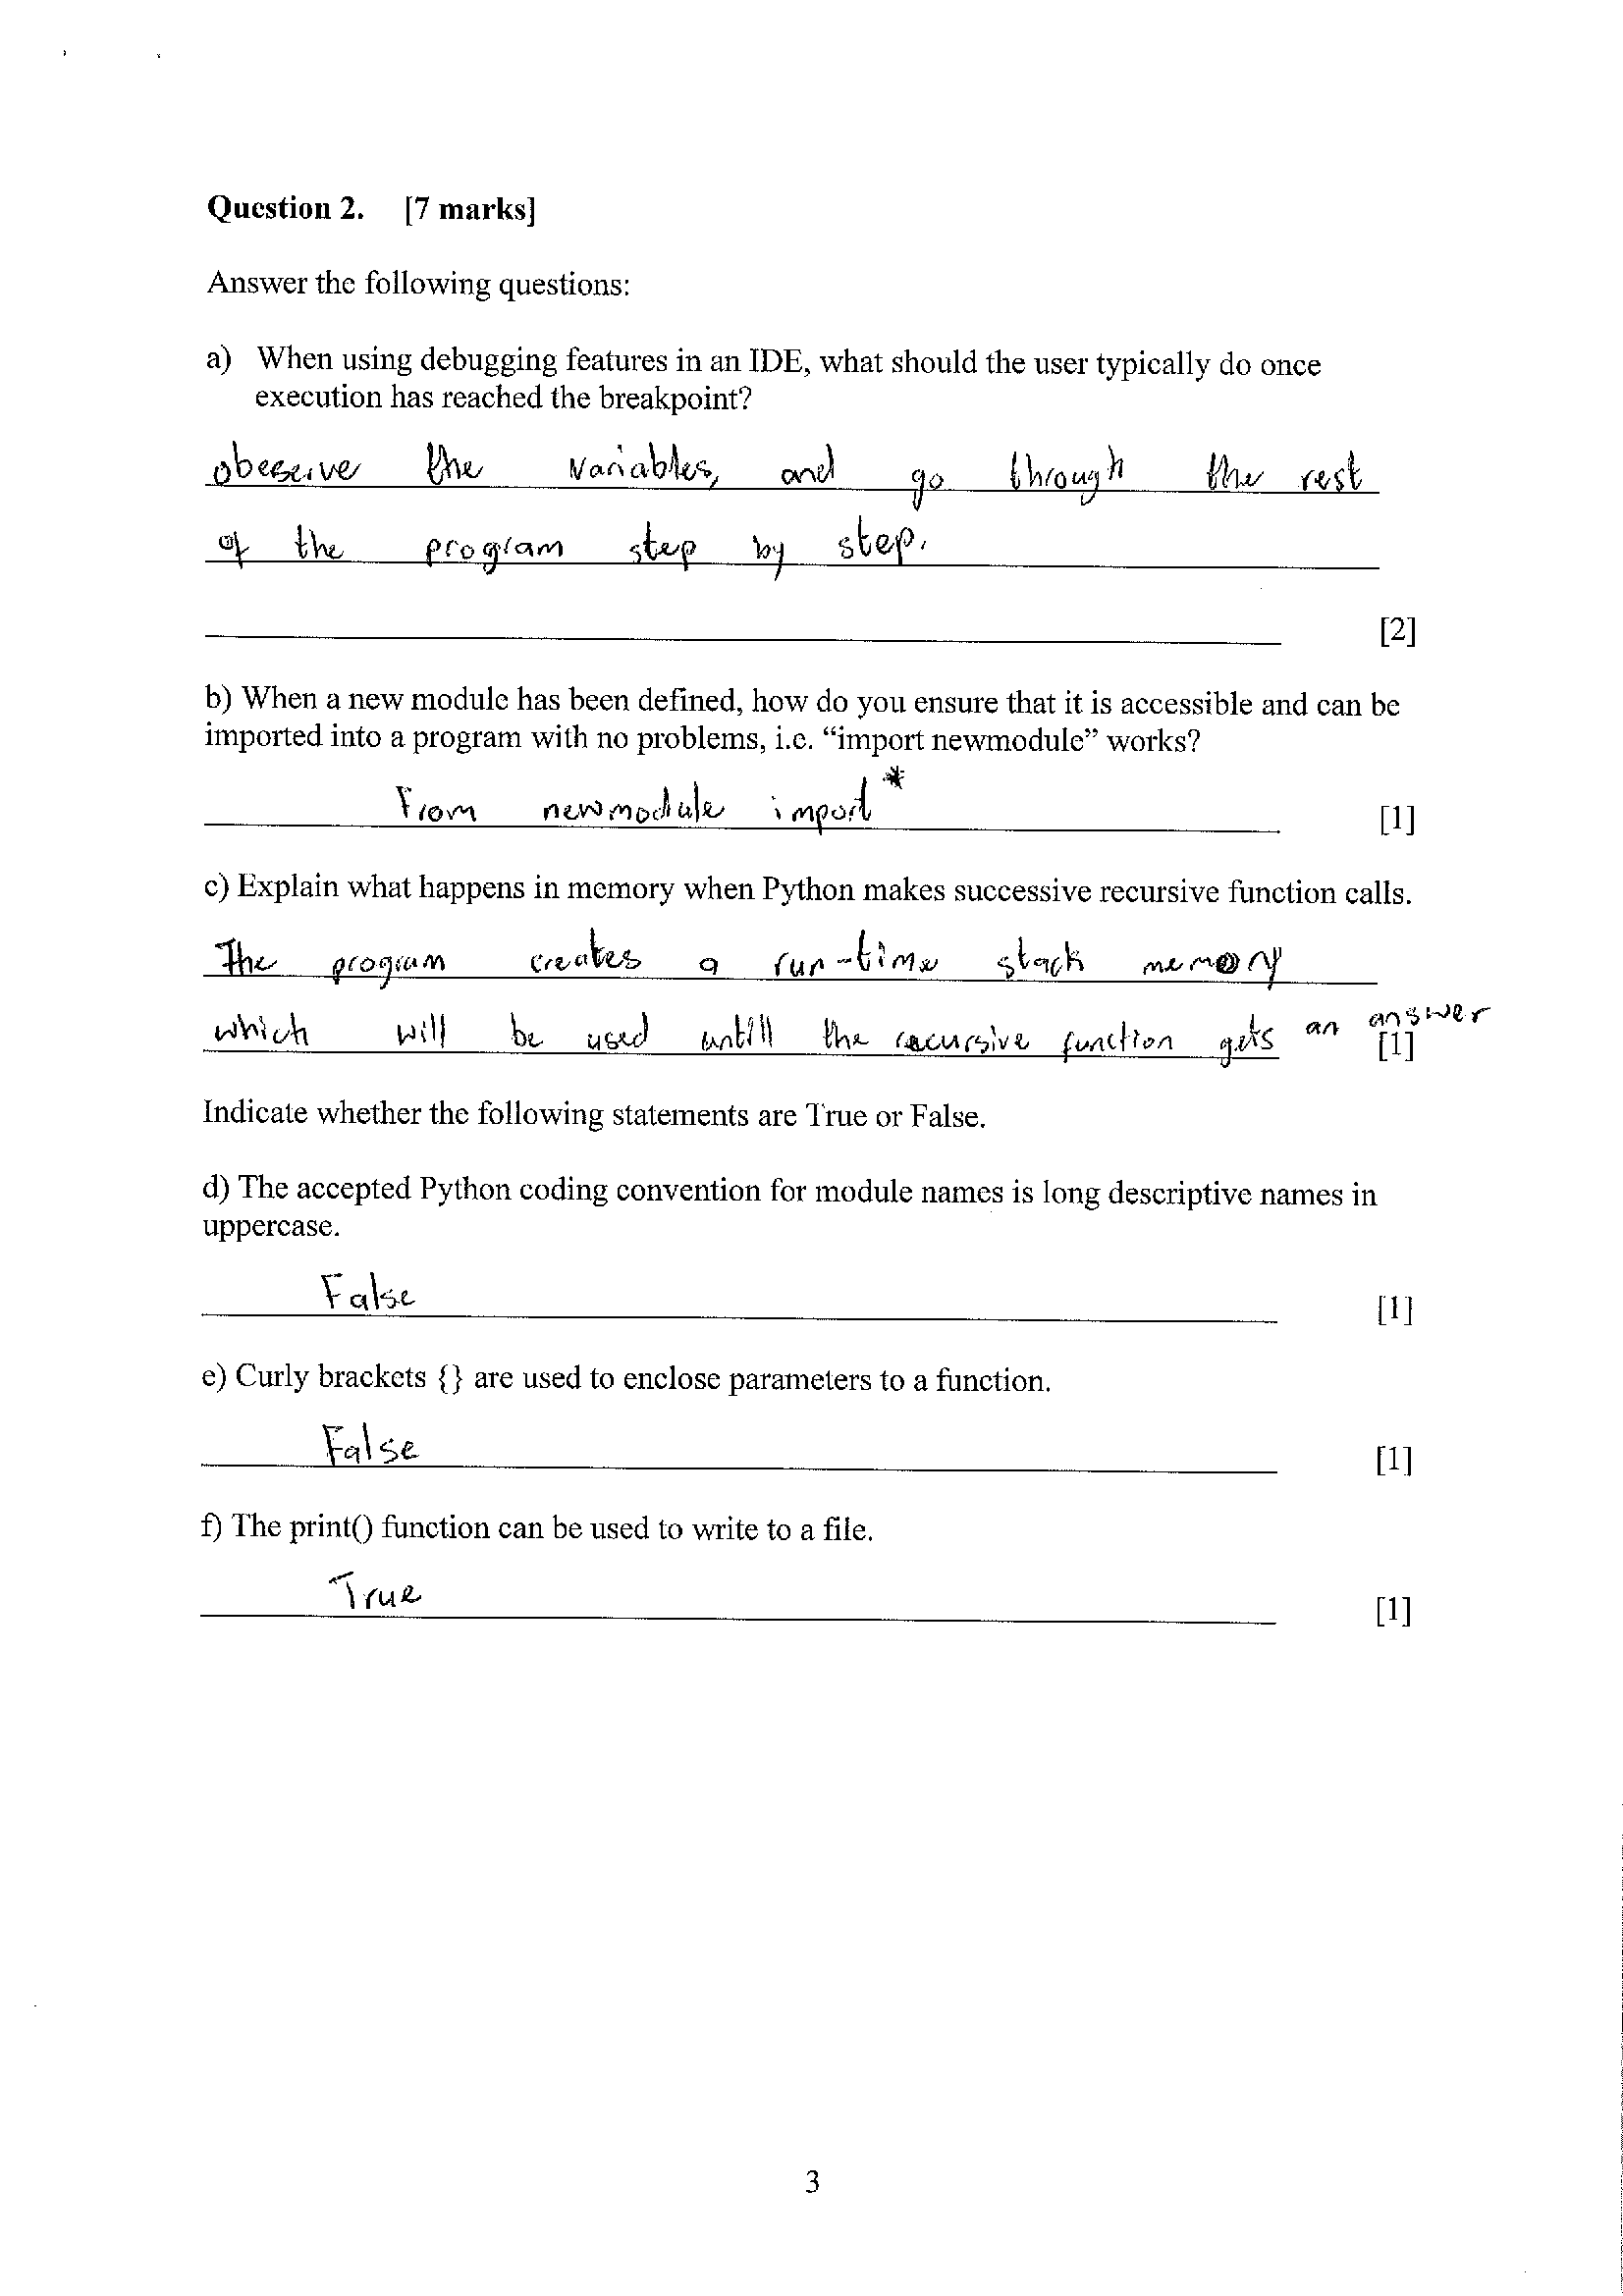 Question 2. [7 marks]
Answer the following questions:
a) When using debugging features in an IDE, what should the user typically do once
execution has reached the breakpoint?
obeserve the variables, and go through the rest
of the program step by step.
[2]
b) When a new module has been defined, how do you ensure that it is accessible and can be
imported into a program with no problems, i.e. “import newmodule” works?
From newmodule import * [1]
c) Explain what happens in memory when Python makes successive recursive function calls.
The program creates a run-time stack memory
which will be used untill the recursive function gets an answer
[1]
Indicate whether the following statements are True or False.
d) The accepted Python coding convention for module names is long descriptive names in
uppercase.
False [1]
e) Curly brackets {} are used to enclose parameters to a function.
False [1]
f) The print() function can be used to write to a file.
True [1]
3